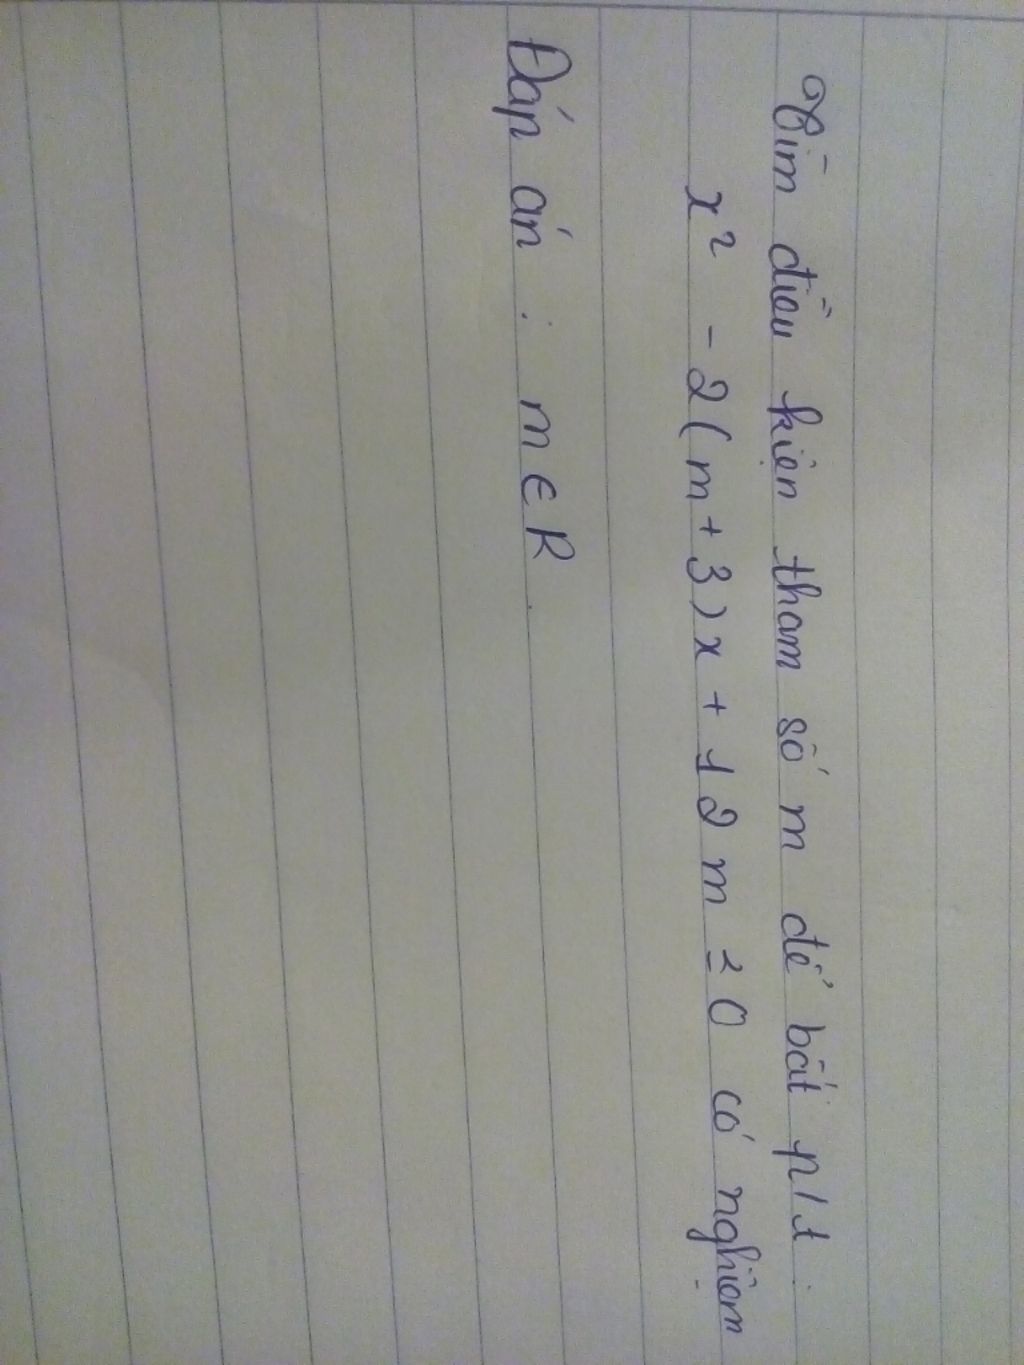 Tìm điều kiện tham số m để bất p/t:
x² - 2(m+3)x + 12m ≤ 0 có nghiệm
Đáp án : m ∈ R.